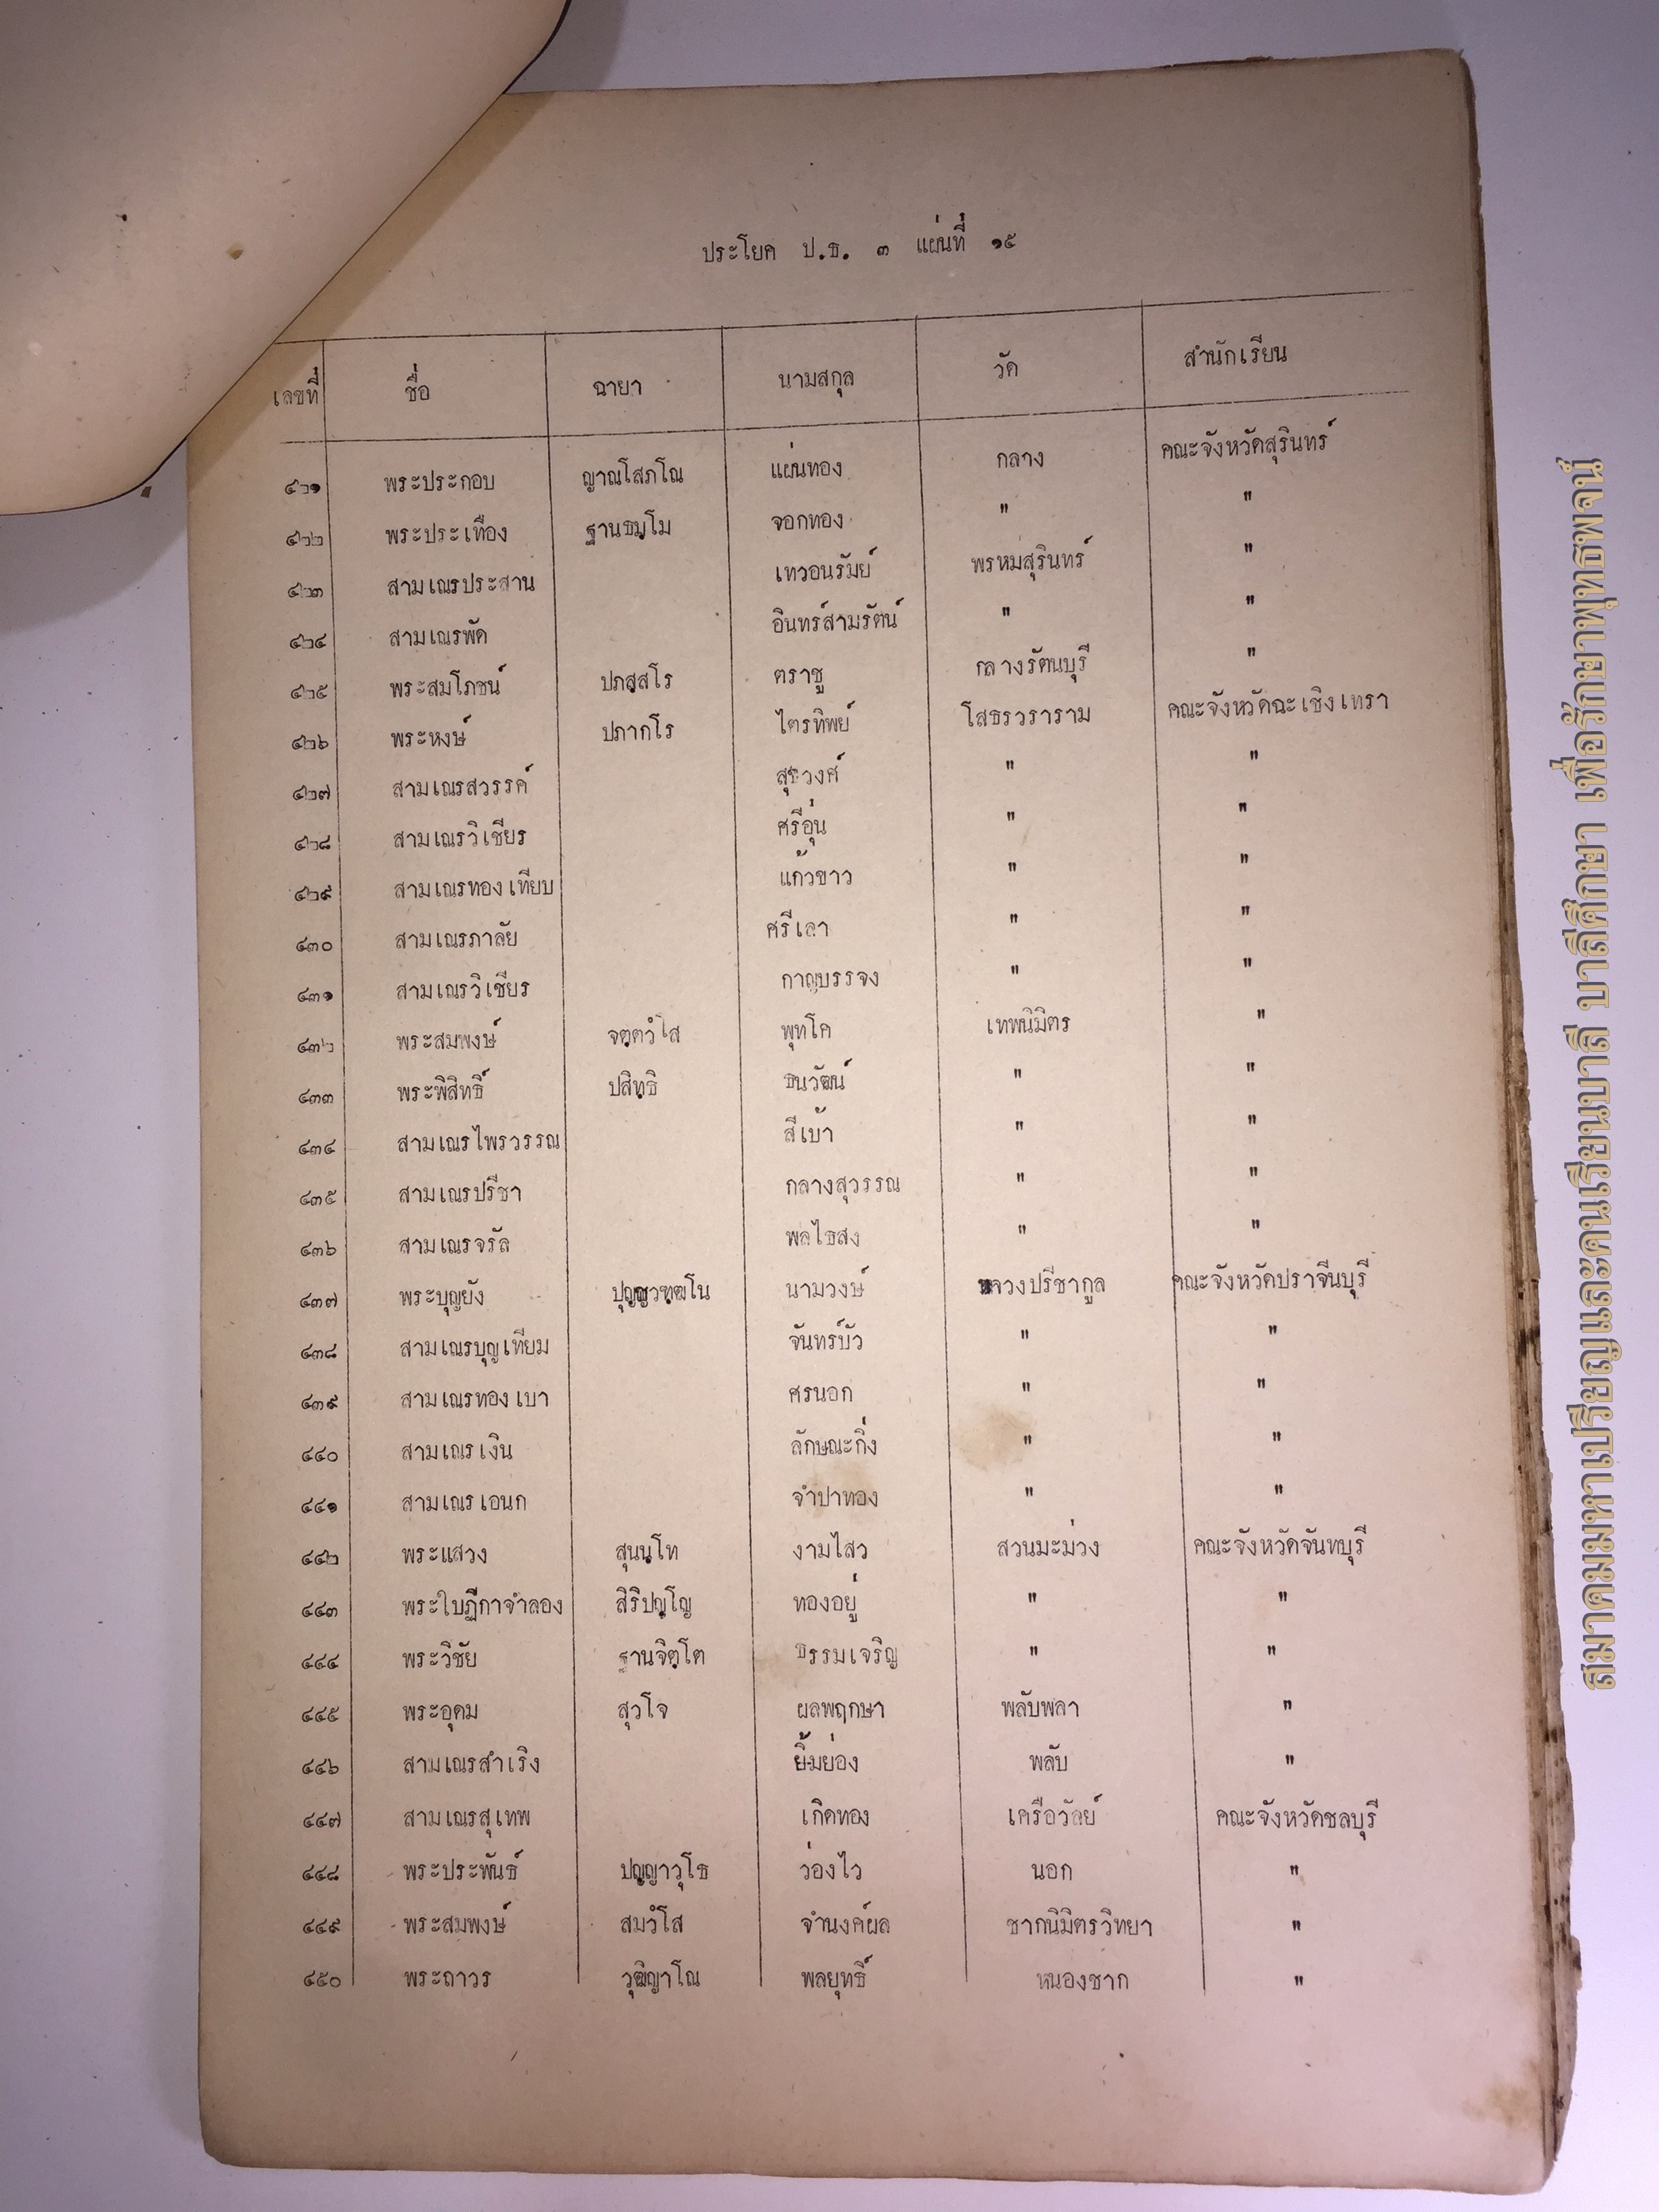 ประโยค ป.ธ. ๓ แผ่นที่ ๑๕
เลขที่ ชื่อ ฉายา นามสกุล วัด สำนักเรียน
๔๒๑ พระประกอบ ญาณโสภโณ แผ่นทอง กลาง คณะจังหวัดสุรินทร์
๔๒๒ พระประเทือง ฐานธมฺโม จอกทอง " "
๔๒๓ สามเณรประสาน เทวอนรัมย์ พรหมสุรินทร์ "
๔๒๔ สามเณรพัด อินทร์สามรัตน์ " "
๔๒๕ พระสมโภชน์ ปภสฺสโร ตราชู กลางรัตนบุรี "
๔๒๖ พระหงษ์ ปภากโร ไตรทิพย์ โสธรวราราม คณะจังหวัดฉะเชิงเทรา
๔๒๗ สามเณรสวรรค์ สุระวงศ์ " "
๔๒๘ สามเณรวิเชียร ศรีอุ่น " "
๔๒๙ สามเณรทองเทียบ แก้วขาว " "
๔๓๐ สามเณรภาลัย ศรีเลา " "
๔๓๑ สามเณรวิเชียร กาญบรรจง " "
๔๓๒ พระสมพงษ์ จตฺตวํโส พุทโค เทพนิมิตร "
๔๓๓ พระพิสิทธิ์ ปสิทฺธิ ธนวัฒน์ " "
๔๓๔ สามเณรไพรวรรณ สีเบ้า " "
๔๓๕ สามเณรปรีชา กลางสุวรรณ " "
๔๓๖ สามเณรจรัล พลไธสง " "
๔๓๗ พระบุญยัง ปุญฺญวฑฺฒโน นามวงษ์ หลวงปรีชากูล คณะจังหวัดปราจีนบุรี
๔๓๘ สามเณรบุญเทียม จันทร์บัว " "
๔๓๙ สามเณรทองเบา ศรนอก " "
๔๔๐ สามเณรเงิน ลักษณะกิ่ง " "
๔๔๑ สามเณรเอนก จำปาทอง " "
๔๔๒ พระแสวง สุนนฺโท งามไสว สวนมะม่วง คณะจังหวัดจันทบุรี
๔๔๓ พระใบฎีกาจำลอง สิริปญฺโญ ทองอยู่ " "
๔๔๔ พระวิชัย ฐานจิตฺโต ธรรมเจริญ " "
๔๔๕ พระอุดม สุวโจ ผลพฤกษา พลับพลา "
๔๔๖ สามเณรสำเริง ยิ้มย่อง พลับ "
๔๔๗ สามเณรสุเทพ เกิดทอง เครือวัลย์ คณะจังหวัดชลบุรี
๔๔๘ พระประพันธ์ ปญฺญาวุโธ ว่องไว นอก "
๔๔๙ พระสมพงษ์ สมวํโส จำนงค์ผล ชากนิมิตรวิทยา "
๔๕๐ พระถาวร วุฒิญาโณ พลยุทธิ์ หนองชาก "
สมาคมมหาเปรียญและคนเรียนบาลี บาลีศึกษา เพื่อรักษาพุทธพจน์